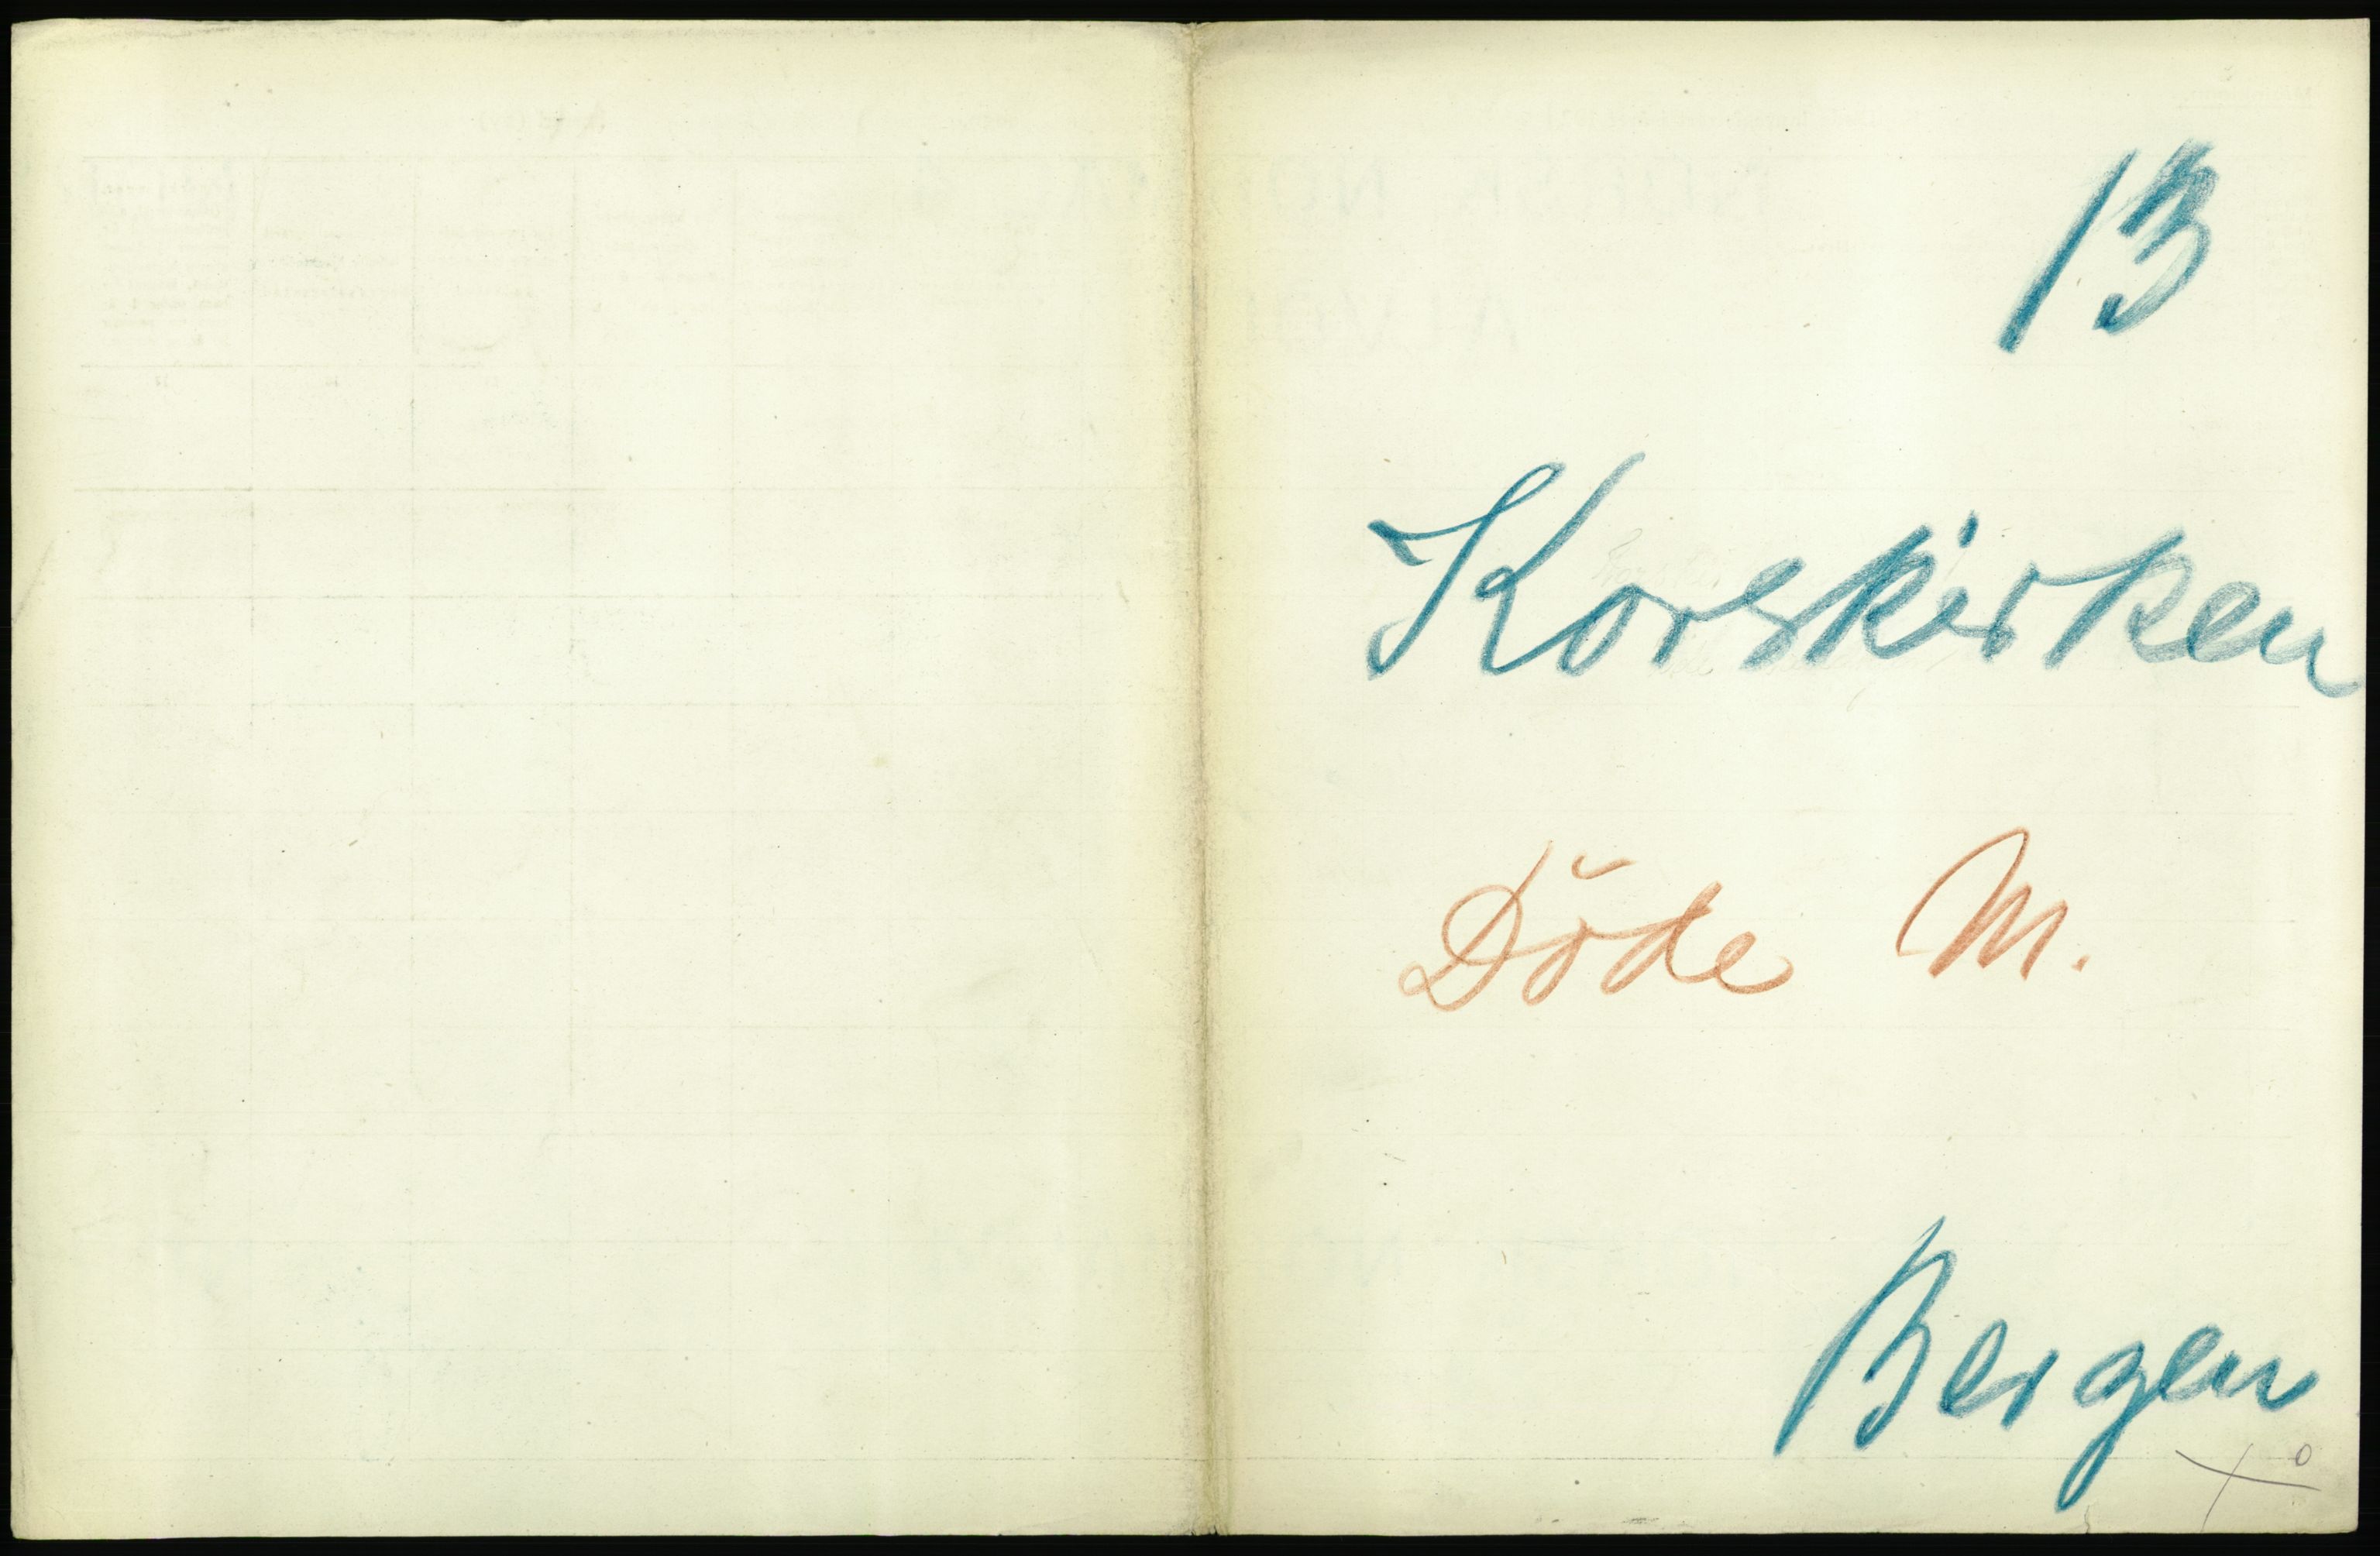 13
Korskirken
Döde M.
Bergen